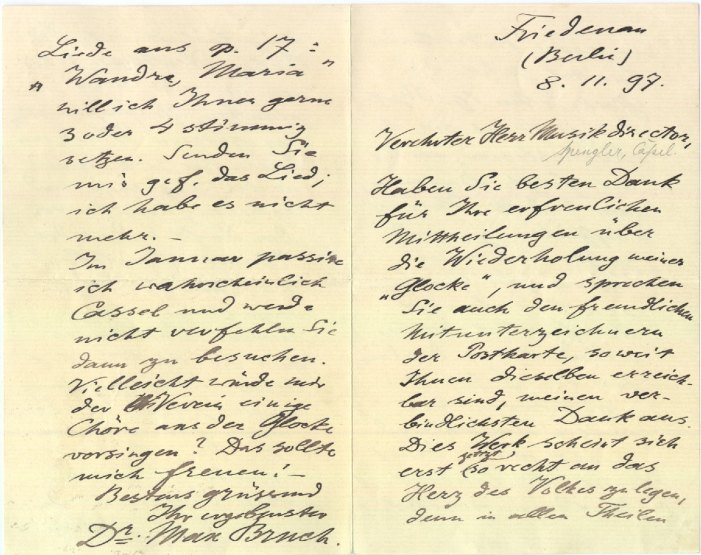 Friedenau
(Berlin)
8. 11. 97.
Verehrter Herr Musikdirector,
Spengler, Cassel.
Haben Sie besten Dank
für Ihre erfreulichen
Mittheilungen über
die Wiederholung meiner
„Glocke“, und sprechen
Sie auch den freundlichen
Mitunterzeichnern
der Postkarte, soweit
Ihnen dieselben erreich-
bar sind, meinen ver-
bindlichsten Dank aus.
Dies Werk scheint sich
jetzt
erst so recht an das
Herz des Volkes zu legen,
denn in allen Theilen
Liede aus p. 17:
„Wandre, Maria“
will ich Ihnen gerne
3 oder 4 stimmig
setzen. Senden Sie
mir gef. das Lied;
ich habe es nicht
mehr. –
Im Januar passire
ich wahrscheinlich
Cassel und werde
nicht verfehlen Sie
dann zu besuchen.
Vielleicht würde mir
der Verein einige
Chöre aus der Glocke
vorsingen? Das sollte
mich freuen! –
Bestens grüssend
Ihr ergebenster
Dr. Max Bruch.